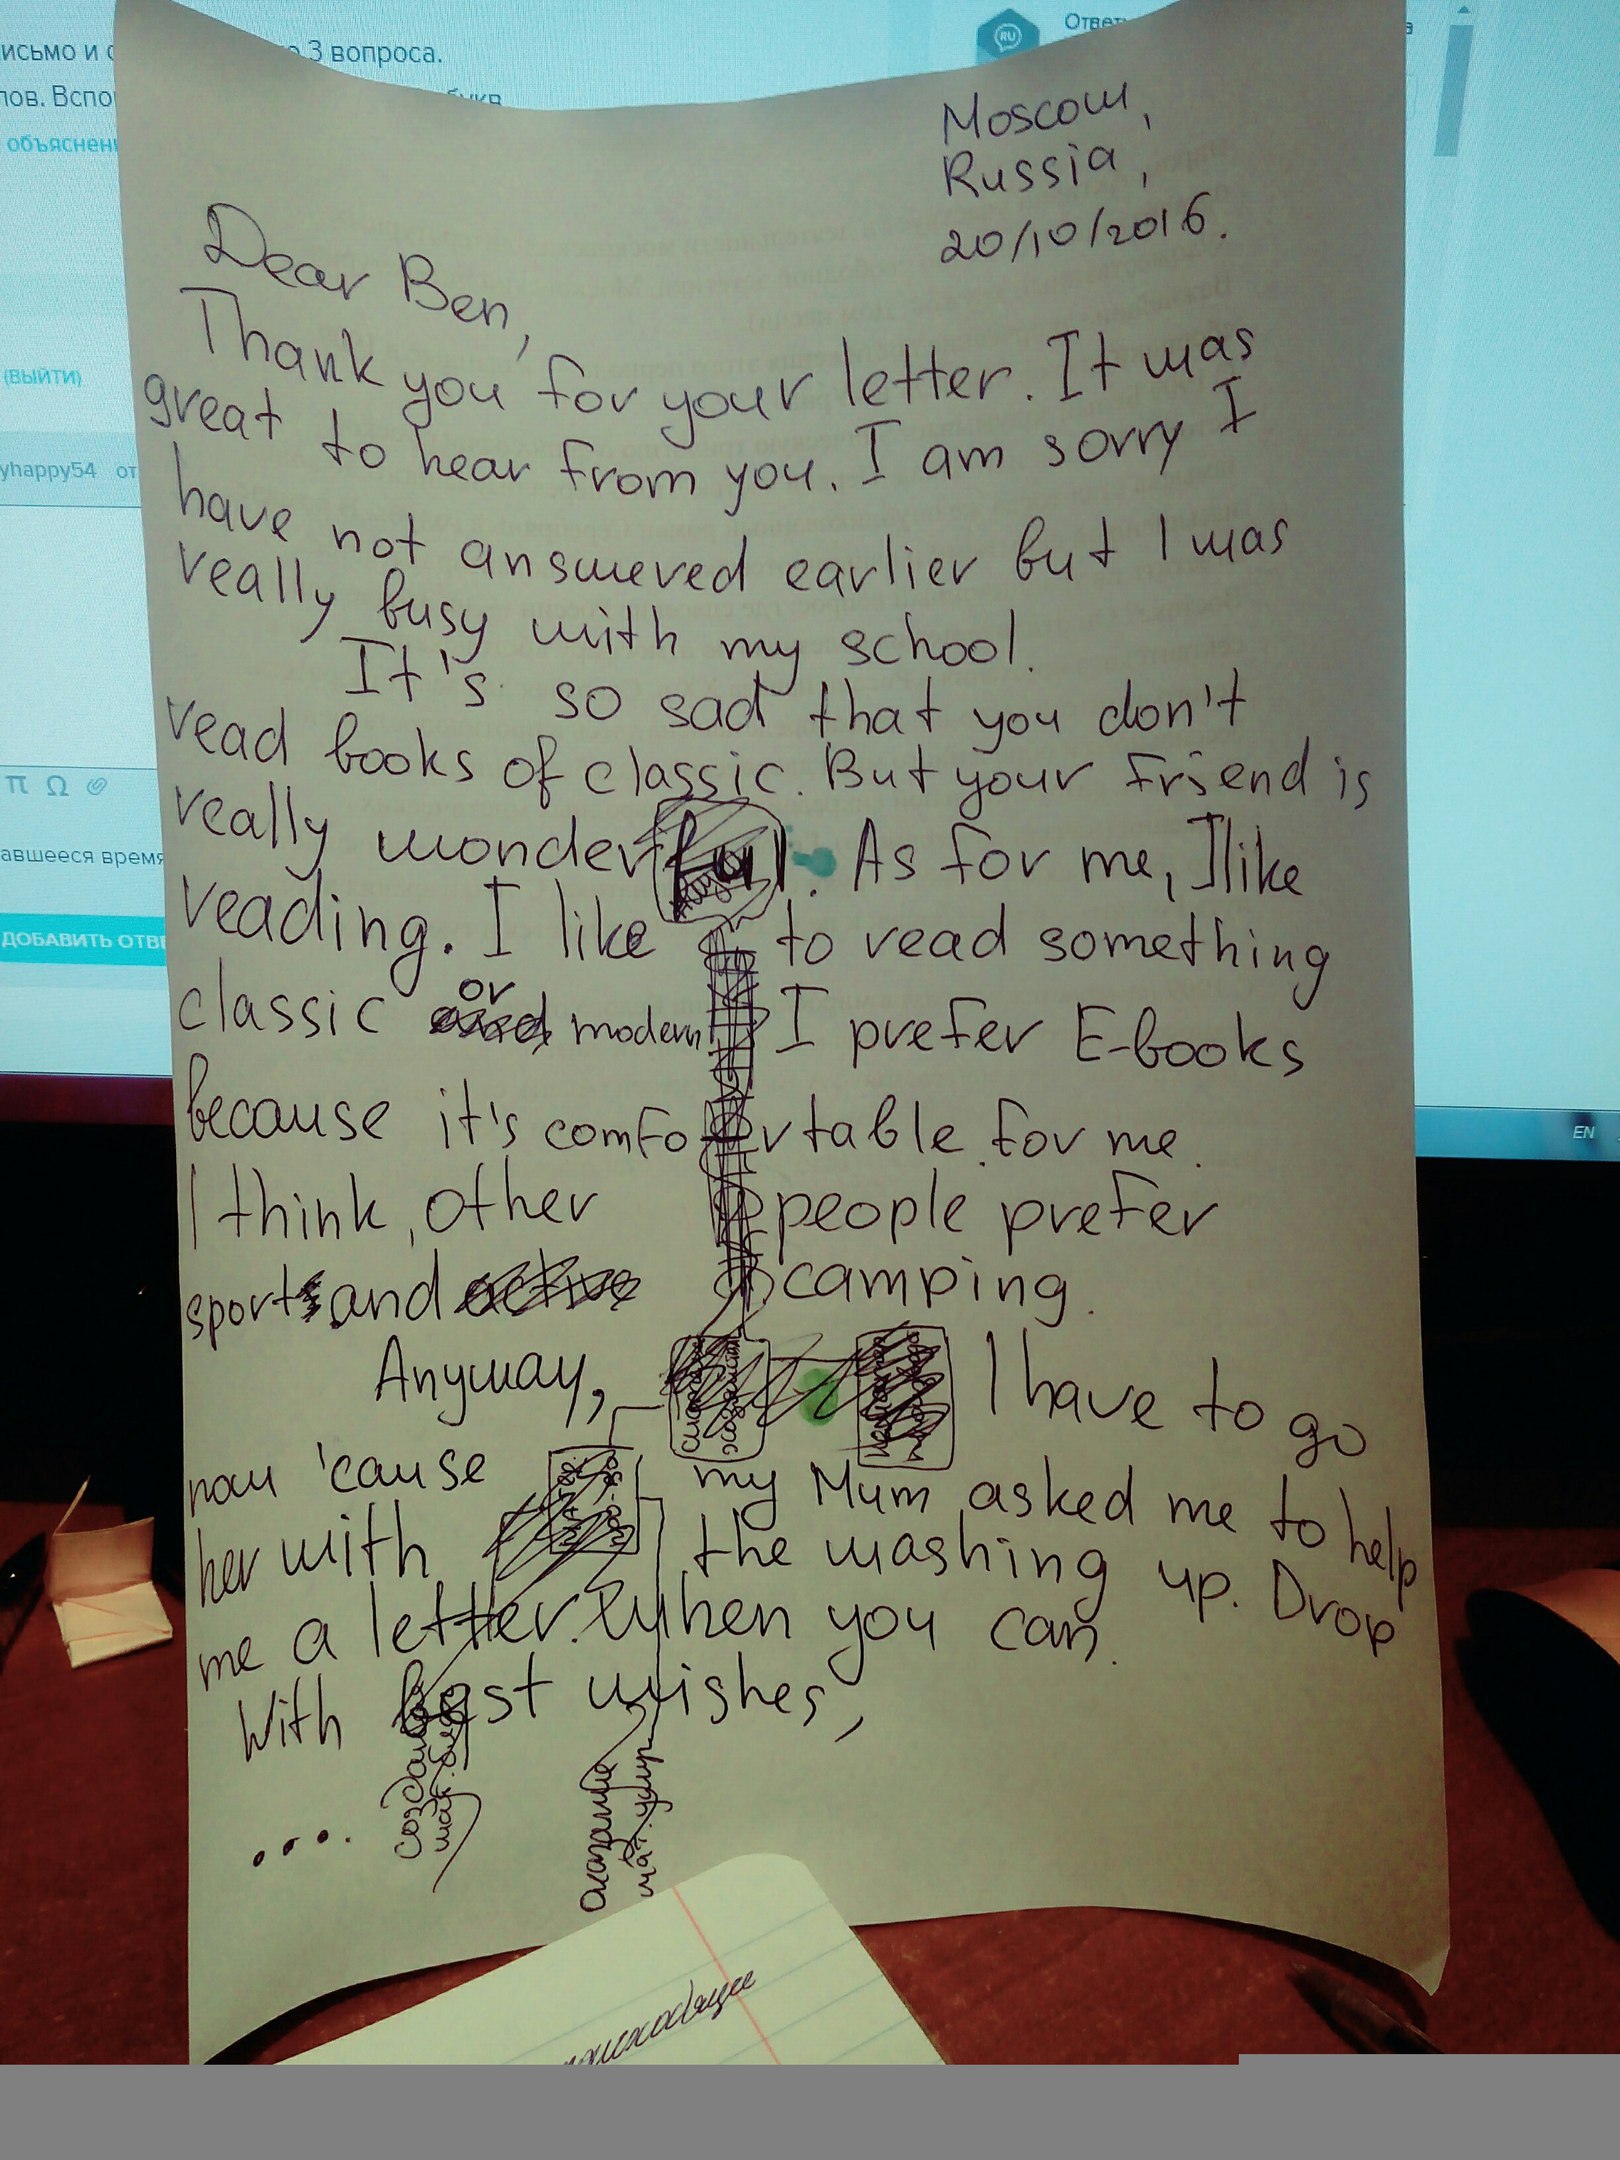 3 вопроса.
(ВЫЙТИ)
yhappy54 от
π Ω
авшееся время
ДОБАВИТЬ ОТВЕ
RU
EN
Moscow,
Russia,
20/10/2016.
Dear Ben,
Thank you for your letter. It was
great to hear from you. I am sorry I
have not answered earlier but I was
really busy with my school.
It's so sad that you don't
read books of classic. But your friend is
really wonderful. As for me, I like
reading. I like to read something
classic or modern I prefer E-books
because it's comfortable for me.
I think, other people prefer
sport and camping.
Anyway, I have to go
now 'cause my Mum asked me to help
her with the washing up. Drop
me a letter. When you can.
With best wishes,
....
Оказание
мат.